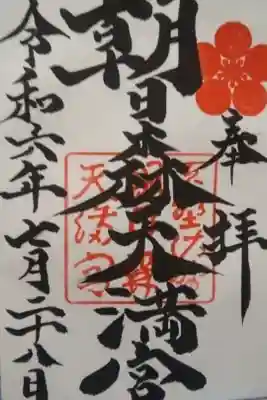 奉拝
朝日森天満宮
令和六年七月二十八日